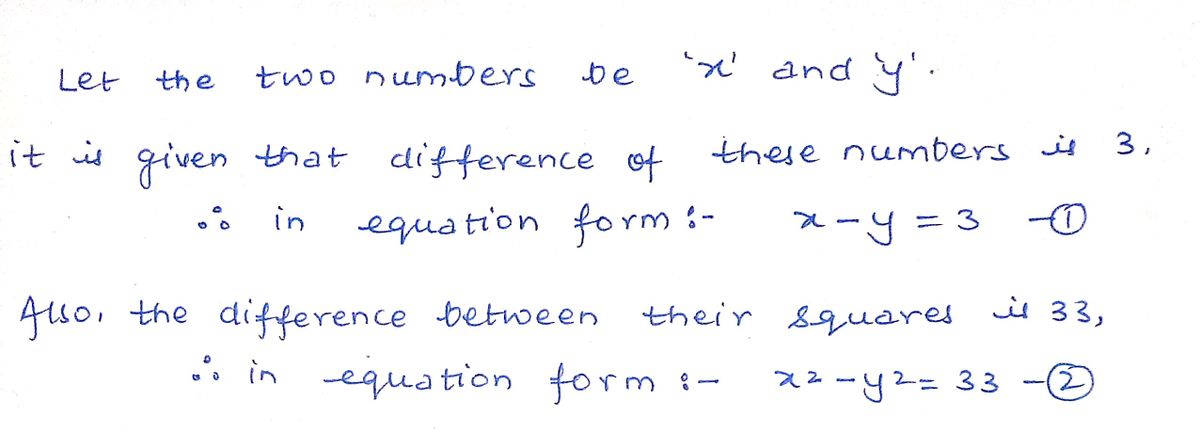 Let the two numbers be 'x' and 'y'.
it is given that difference of these numbers is 3,
∴ in equation form :- x - y = 3 -①
Also, the difference between their squares is 33,
∴ in equation form :- x2 - y2 = 33 -②